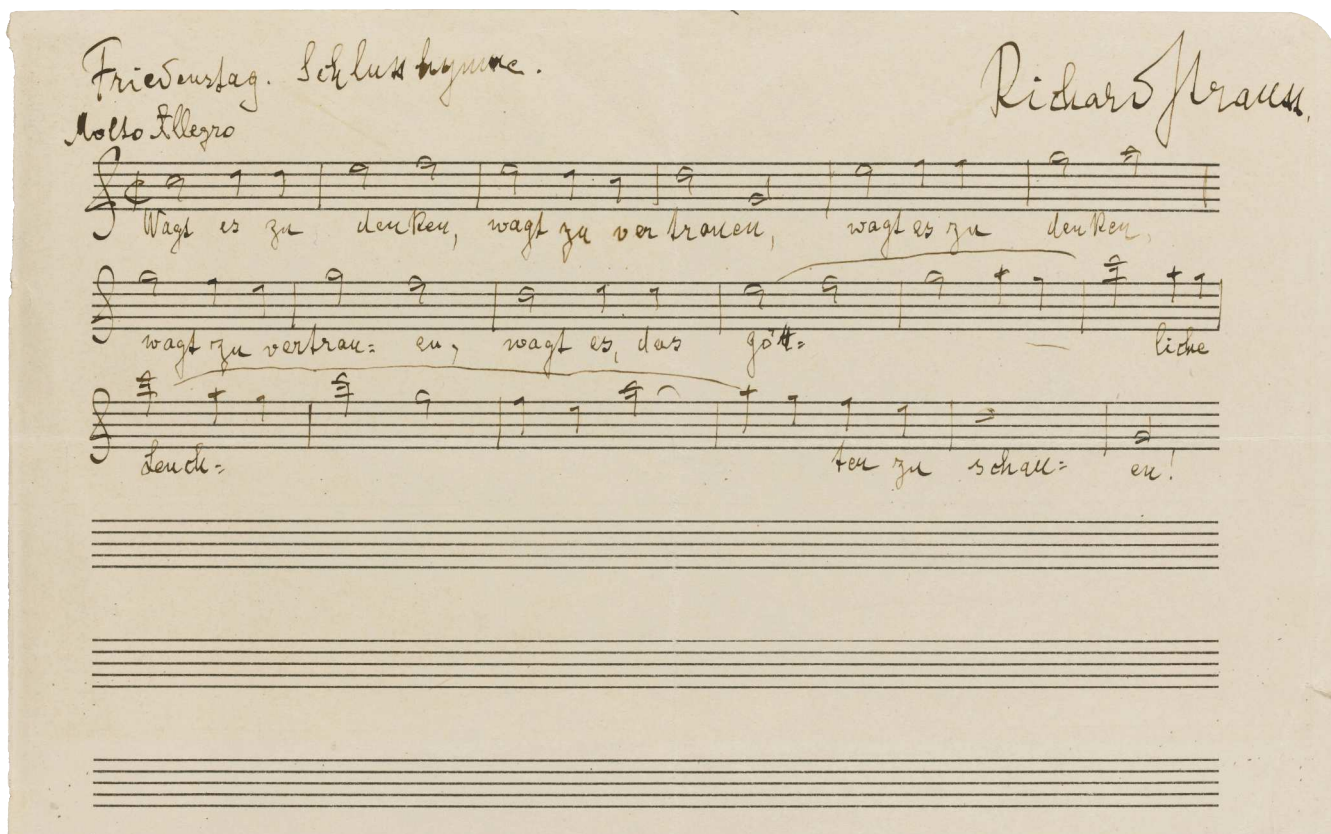 Friedenstag. Schlusshymne.
Richard Strauss.
Molto Allegro
Wagt es zu denken, wagt zu vertrauen, wagt es zu denken,
wagt zu vertrau= en, wagt es, das gött= liche
Leuch= ten zu schau= en!